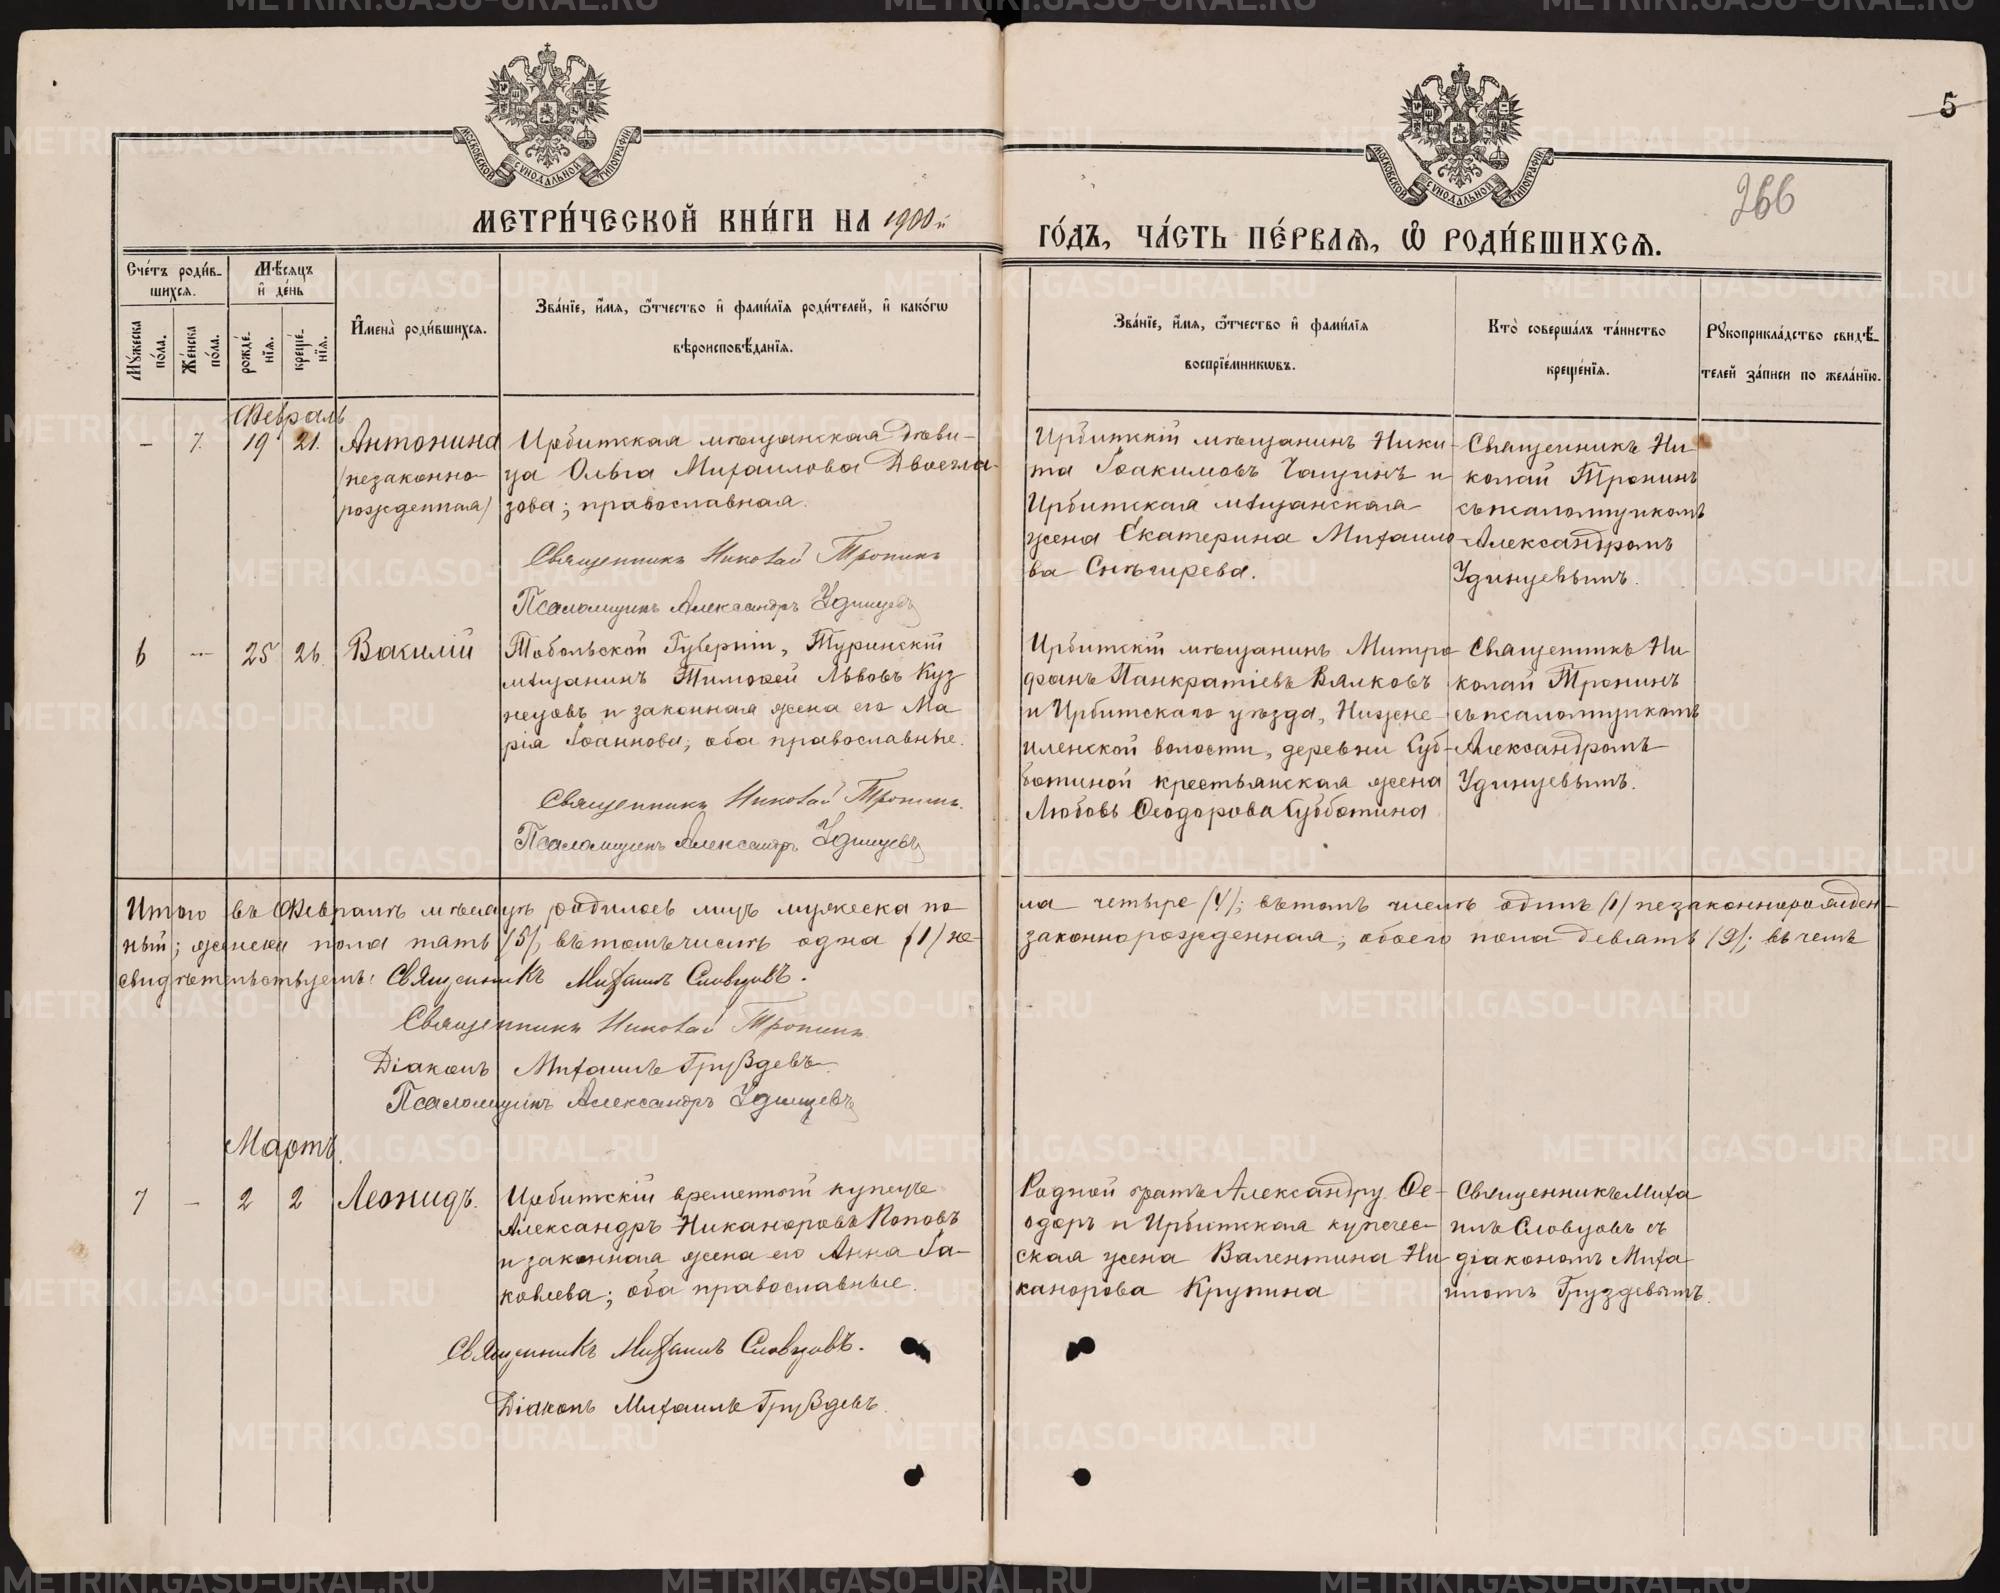 МОСКОВСКОЙ СѴНОДАЛЬНОЙ ТИПОГРАФІИ
МОСКОВСКОЙ СѴНОДАЛЬНОЙ ТИПОГРАФІИ
5
266
МЕТРИ́ЧЕСКОЙ КНИ́ГИ НА 1900й
ГО́ДЪ, ЧА́СТЬ ПЕ́РВАѦ, Ѡ҆ РОДИ́ВШИХСѦ.
Сче́тъ роди́в-
шихсѧ.
Мѣ́сѧцъ
и҆ де́нь
Мꙋ́жеска
по́ла.
Же́нска
по́ла.
рожде́-
нїѧ.
креще́-
нїѧ.
И҆мена̀ роди́вшихсѧ.
Зва́нїе, и҆́мѧ, ѻ҆́тчество и҆ фами́лїѧ роди́телей, и҆ како́гѡ
вѣроисповѣ́данїѧ.
Зва́нїе, и҆́мѧ, ѻ҆́тчество и҆ фами́лїѧ
воспрїе́мникѡвъ.
Кто̀ соверша́лъ та́инство
креще́нїѧ.
Рꙋкоприкла́дство свидѣ́-
телей за́писи по жела́нїю.
Февраль
– 7. 19 21. Антонина
/незаконно-
рожденная/
Ирбитская мѣщанская дѣви-
ца Ольга Михаилова Двоегла-
зова; православная.
Священникъ Николай Тронинъ
Псаломщикъ Александръ Удинцевъ
Ирбитскій мѣщанинъ Ники-
та Іоакимовъ Чащинъ и
Ирбитская мѣщанская
жена Екатерина Михаило-
ва Снѣгирева.
Священникъ Ни-
колай Тронинъ
съ псаломщикомъ
Александромъ
Удинцевымъ.
6 – 25 26. Василій
Тобольской Губерніи, Туринскій
мѣщанинъ Тимофей Львовъ Куз
нецовъ и законная жена его Ма
рія Іоаннова; оба православные.
Священникъ Николай Тронинъ.
Псаломщикъ Александръ Удинцевъ
Ирбитскій мѣщанинъ Митро
фанъ Панкратіевъ Вялковъ
и Ирбитскаго уѣзда, Нижне-
иленской волости, деревни Суб-
ботиной крестьянская жена
Любовь Ѳеодорова Субботина
Священникъ Ни-
колай Тронинъ
съ псаломщикомъ
Александромъ
Удинцевымъ.
Итого въ Февралѣ мѣсяцѣ родилось лицъ мужеска по-
ла четыре /4/; въ томъ числѣ одинъ /1/ незаконнорожден-
ный; женска пола пять /5/, въ томъ числѣ одна /1/ не-
законнорожденная; обоего пола девять /9/; въ чемъ
свидѣтельствуемъ: Священникъ Михаилъ Словцовъ.
Священникъ Николай Тронинъ
Діаконъ Михаилъ Груздевъ
Псаломщикъ Александръ Удинцевъ
Мартъ.
7 – 2 2 Леонидъ.
Ирбитскій временной купецъ
Александръ Никаноровъ Поповъ
и законная жена его Анна Іа-
ковлева; оба православные.
Священникъ Михаилъ Словцовъ.
Діаконъ Михаилъ Груздевъ.
Родной братъ Александру Ѳе-
одоръ и Ирбитская купечес-
ская жена Валентина Ни-
канорова Крупина
Священникъ Миха
илъ Словцовъ съ
діакономъ Миха
иломъ Груздевымъ.
METRIKI.GASO-URAL.RU